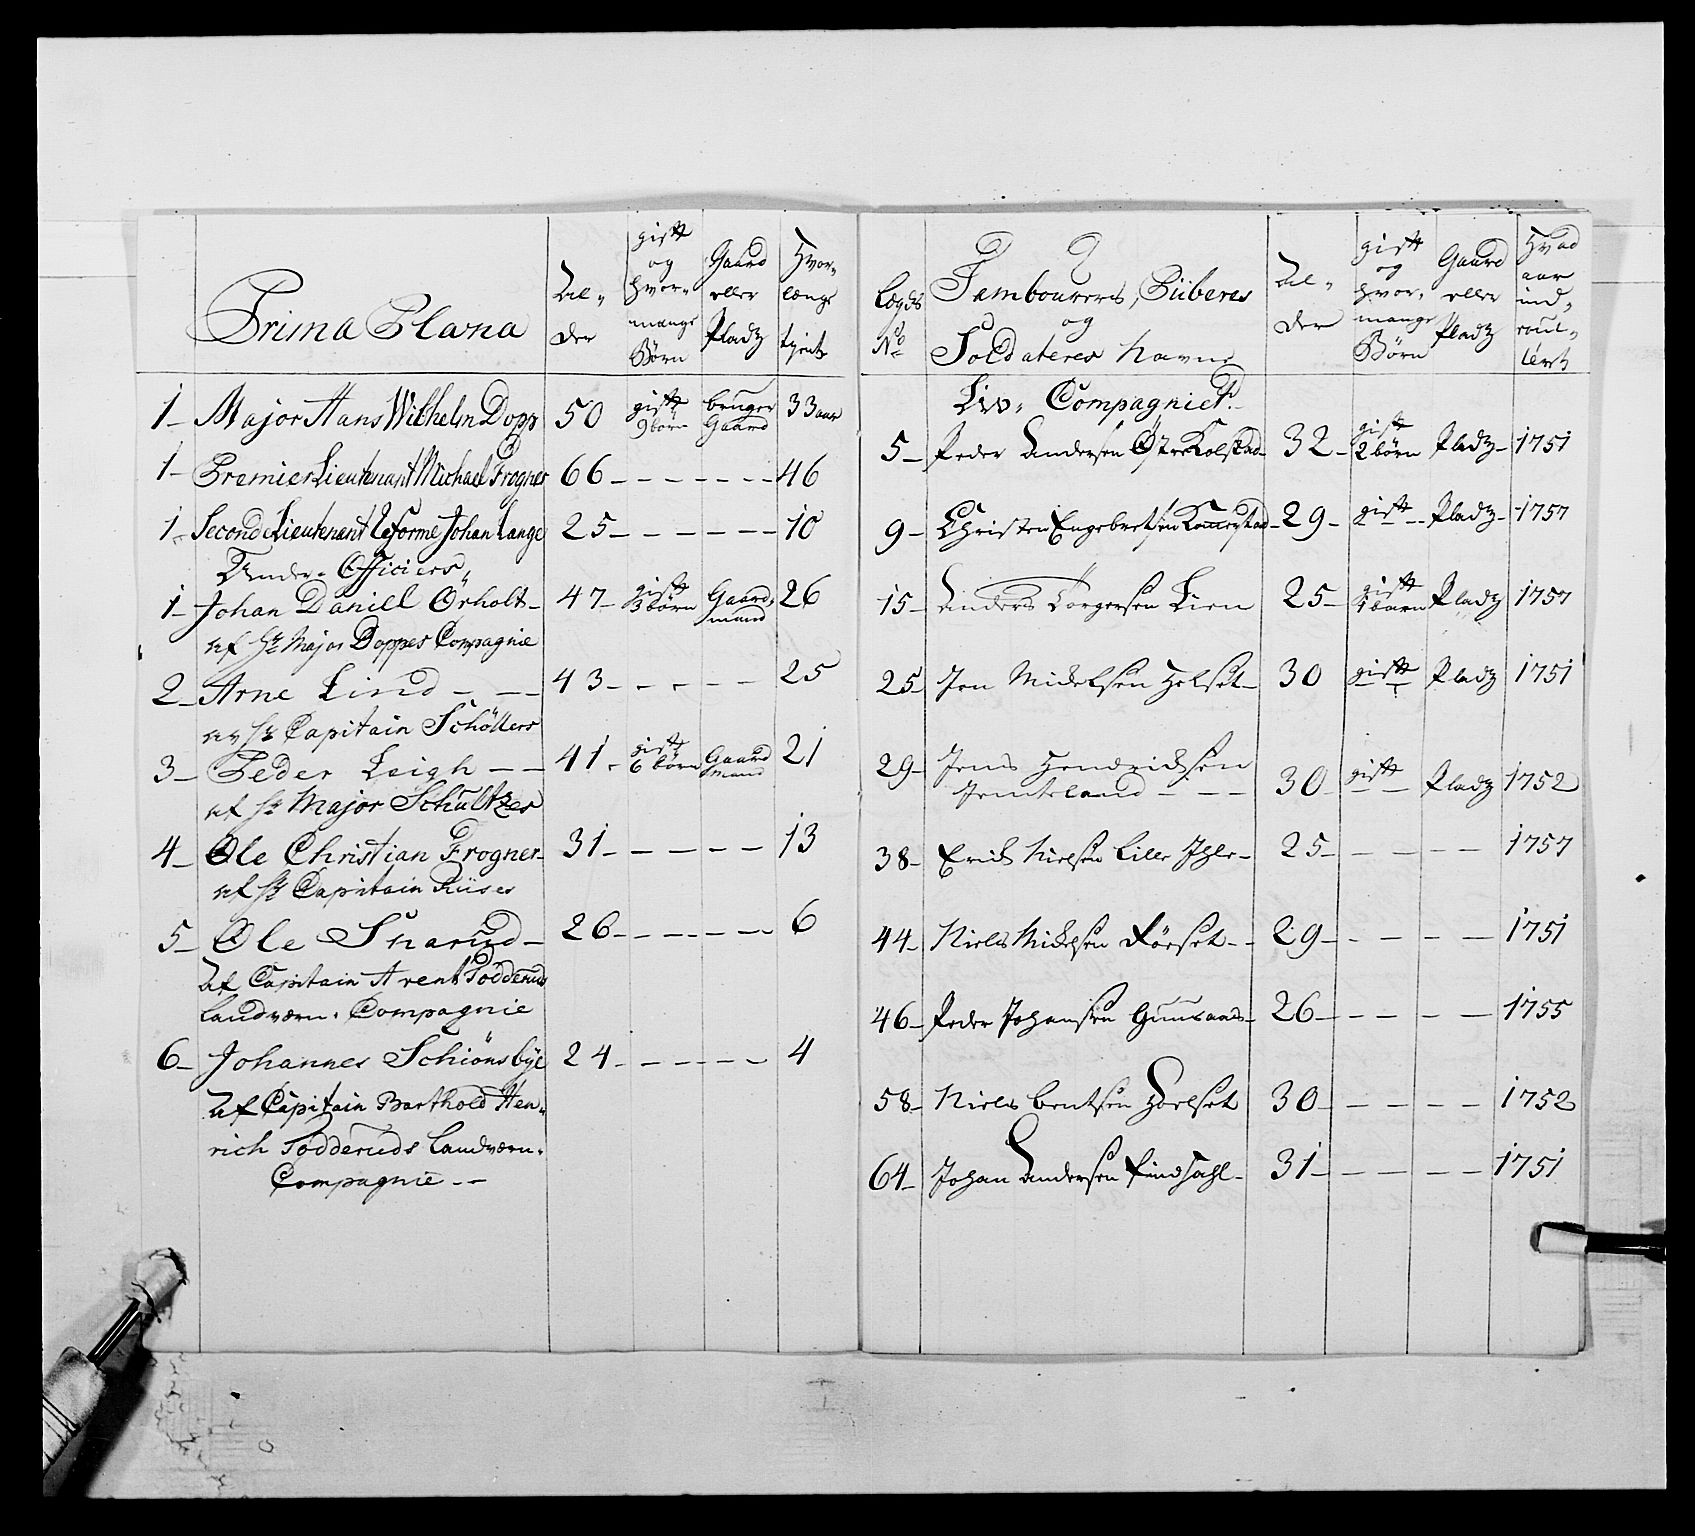 Prima Plana
Al-
der
gift
og
hvor-
mange
Børn
Gaard
eller
Pladz
Hvor-
længe
tjent
1- Major Hans Wilhelm Dopp 50 gift 9 børn bruger Gaard 33 aar
1- Premier Lieutenant Michael Frogner 66 - - - - - - 46
1- Seconde Lieutenant Reforme Johan Lange 25 - - - - - - 10
Under-Officiers
1- Johan Daniel Örholt- 47- gift 3 børn Gaard-mand 26
af Hr Major Doppes Compagnie
2- Arne Lind - - - 43 - - - - - 25
av Hr Capitain Schöllers
3- Peder Leigh - - 41- gift 6 børn Gaard Mand 21
af Hr Major Schultzes
4- Ole Christian Frogner- 31 - - - - - 13
af Hr Capitain Riises
5- Ole Snarud- 26 - - - - - - 6
Af Capitain Arent Todderuds
Landværn- Compagnie
6- Johannes Schiønsbye 24 - - - - - - 4
Af Capitain Barthold Hen-
rich Todderuds Landværn-
Compagnie --
Lægds
No
Tambourers, Piiberes
og
Soldateres Navne
Al-
der
gift
og
hvor-
mange
Børn
Gaard
eller
Pladz
Hvad
aar
ind-
roul-
lert
Liv- Compagniet.
5- Peder Andersen Østre Kolstad- 32- gift 2 børn Pladz- 1751
9- Christen Engebretsen - 29- gift - Pladz- 1757
15- Anders Torgersen Lien 25- gift 1 barn Pladz 1757
25- Jon Mickelsen Helset- 30 gift Pladz 1751
29- Jens Hendricksen
Jemteland - - - 30- gift Pladz 1752
38- Erick Nielsen Lille Ihle- 25 - - - - 1757
44- Niels Mickelsen Förset - - 29 - - - - 1751
46- Peder Johansen - 26 - - - - 1755
58- Niels Bentsen Hoelset 30 - - - - 1752
64- Johan Andersen Findsahl- 31 - - - - 1751